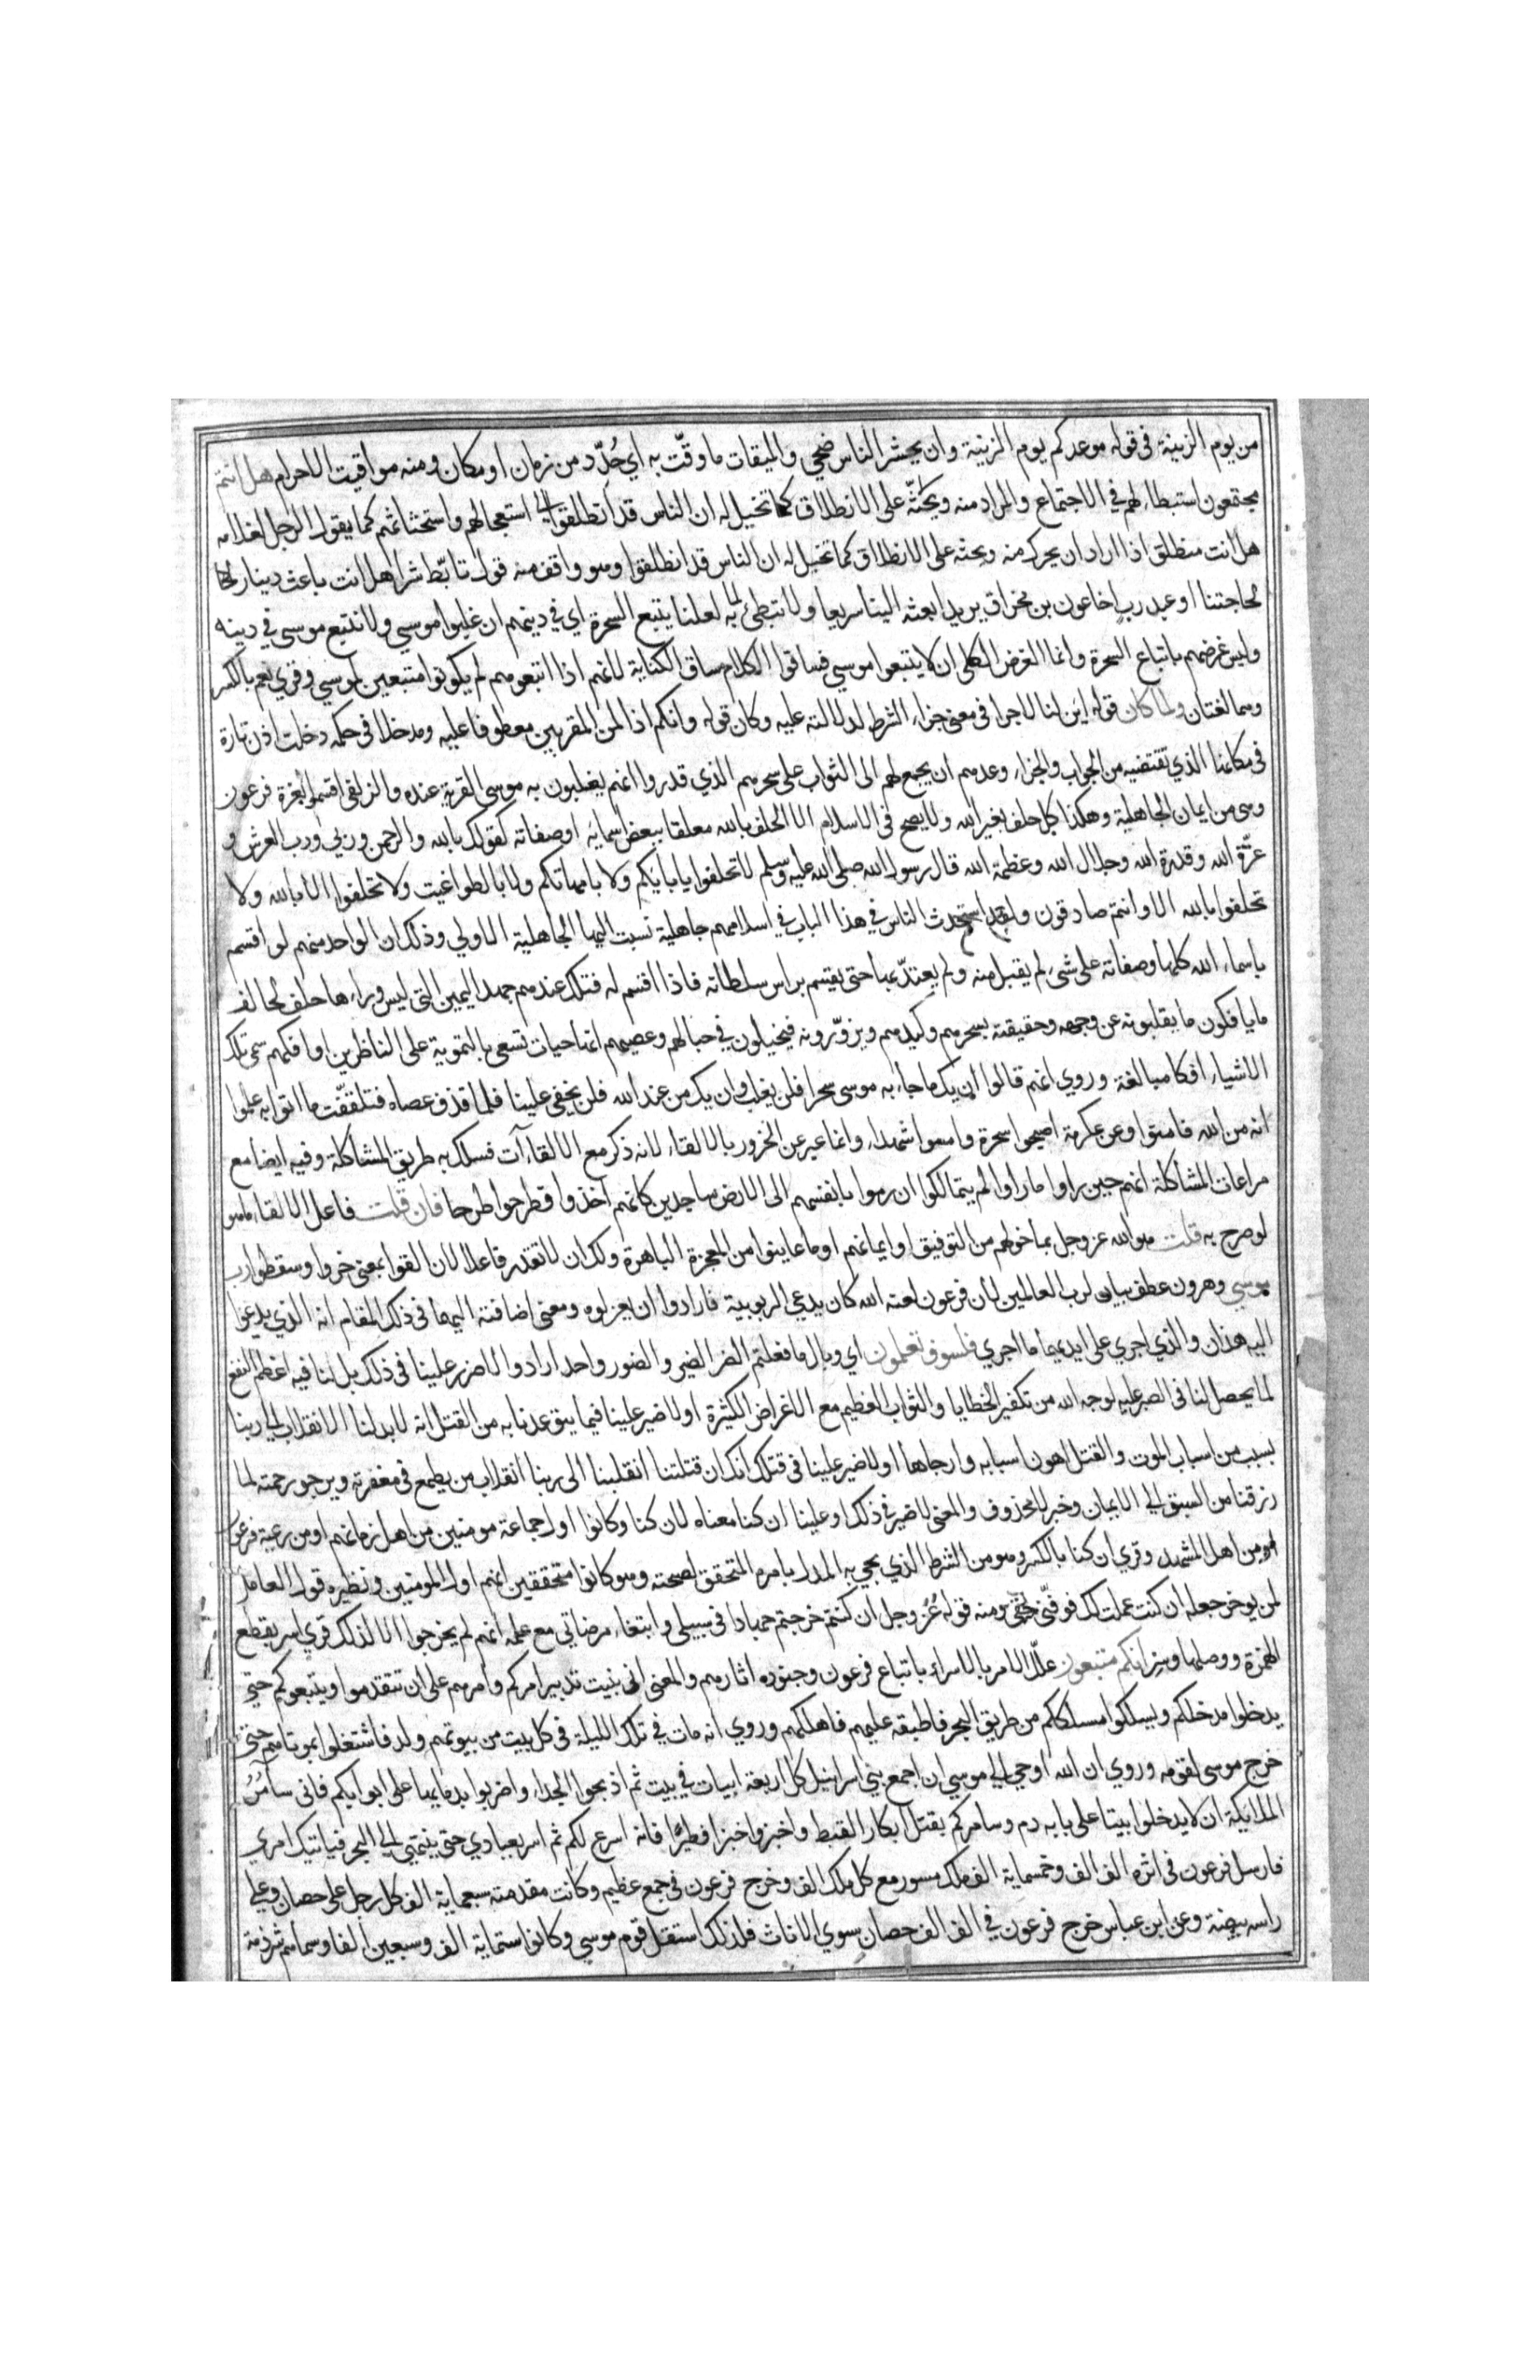 من يوم الزينة في قوله موعدكم يوم الزينة وان يحشر الناس ضحي والميقات ماوقّت به اي حُدّد من زمان او مكان ومنه مواقيت الاحرام هل انتم
مجتمعون استبطاء لهم في الاجتماع والمراد منه ويحثّه على الانطلاق كما تخيل له ان الناس قد انطلقوا الى استعجالهم واستحثاثهم كما يقول الرجل لغلامه
هل انت منطلق اذا اراد ان يحرك منه ويحثه على الانطلاق كما تخيل له ان الناس قد انطلقوا وهو واقف منه قول تابّط شرا هل انت باعث دينار لحا
لحاجتنا او عبد رب اخاعون بن مخراق يريد ابعثه الينا سريعا ولا تبطئ به لعلنا يتبع السحرة اي في دينهم ان غلبوا موسي ولا نتبع موسى في دينه
وليس غرضهم باتباع السحرة وانما الغرض الكلي ان لا يتبعوا موسي فساقوا الكلام مساق الكناية لانهم اذا اتبعوهم لم يكونوا متبعين لموسي وقري نعم بالكسر
وهما لغتان ولما كان قوله ائن لنا لاجرا في معنى جزاء الشرط لدلالته عليه وكان قوله وانكم اذا لمن المقربين معطوفا عليه ومدخلا في حكمه دخلت اذن تارة
في مكانها الذي تقتضيه من الجواب والجزاء وعدهم ان يجمع لهم الى الثواب على سحرهم الذي قدروا انهم يغلبون به موسى القربة عنده والزلفى اقسموا بعزة فرعون
وهي من ايمان الجاهلية وهكذا كل حلف بغير الله ولا يصح في الاسلام الا الحلف بالله معلقا ببعض اسمايه او صفاته كقولك بالله والرحمن وربي ورب العرش و
عزّة الله وقدرة الله وجلال الله وعظمة الله قال رسول الله صلى الله عليه وسلم لا تحلفوا بابايكم ولا بامهاتكم ولا بالطواغيت ولا تحلفوا الا بالله ولا
تحلفوا بالله الا وانتم صادقون ولقد استحدث الناس في هذا الباب في اسلامهم جاهلية نسبت اليها الجاهلية الاولي وذلك ان الواحد منهم لو اقسم
باسماء الله كلها وصفاته على شىء لم يقبل منه ولم يعتدّ بها حتى يقسم براس سلطانه فاذا اقسم له فتلك عندهم جهد اليمين التى ليس وراءها حلف لحالف
ما يافكون ما يقلبونه عن وجهه وحقيقته بسحرهم وكيدهم ويزوّرونه فيخيلون في حبالهم وعصيهم انها حيات تسعى بالتموية على الناظرين او افكهم سمي تلك
الاشياء افكا مبالغة وروي انهم قالوا ان يك ما جاء به موسى سحرا فلن يغلب وان يك من عند الله فلن يخفى علينا فلما قذف عصاه فتلقفت ما اتوا به علموا
انه من الله فامنوا وعن عكرمة اصبحوا سحرة وامسوا شهداء وانما عبر عن الخرور بالالقاء لانه ذكر مع الالقاءآت فسلك به طريق المشاكلة وفيه ايضا مع
مراعات المشاكلة انهم حين راوا ما راوا لم يتمالكوا ان رموا بانفسهم الى الارض ساجدين كانهم اخذوا فطرحوا طرحا فان قلت فاعل الالقاء ما هو
لو صرح به قلت هو الله عز وجل بما خولهم من التوفيق او ايمانهم او ما عاينوا من المعجزة الباهرة ولك ان لا تقدر فاعلا لان القوا بمعنى خروا وسقطوا رب
موسي وهرون عطف بيان لرب العالمين لان فرعون لعنه الله كان يدعي الربوبية فارادوا ان يعزلوه ومعنى اضافته اليهما في ذلك المقام انه الذي يدعوا
اليه هذان والذي اجري على ايديهما ما اجري فلسوف تعلمون اي وبال ما فعلتم الضر الضير والضور واحد ارادوا لا ضرر علينا فى ذلك بل لنا فيه اعظم النفع
لما يحصل لنا فى الصبر عليه لوجه الله من تكفير الخطايا والثواب العظيم مع الاغراض الكثيرة او لا ضير علينا فيما يتوعدنا به من القتل انه لابد لنا الانقلاب الى ربنا
بسبب من اسباب الموت والقتل اهون اسبابه وارجاها او لا ضير علينا فى قتلك انك ان قتلتنا انقلبنا الى ربنا انقلاب من يطمع فى مغفرته ويرجو رحمته لما
رزقنا من السبق الى الايمان وخبر لا محذوف والمعنى لا ضير فى ذلك او علينا ان كنا معناه لان كنا وكانوا اول جماعة مومنين من اهل زمانهم او من رعية فرعون
او من اهل المشهد وقري ان كنا بالكسر وهو من الشرط الذي يجي به المدل بامره المتحقق لصحته وهو كانوا متحققين انهم اول المومنين ونظيره قول العامل
لمن يوخر جعله ان كنت عملت لك فوفّني حقي ومنه قوله عز وجل ان كنتم خرجتم جهادا فى سبيلي وابتغاء مرضاتي مع علمه انهم لم يخرجوا الا لذلك قري اسر بقطع
الهمزة ووصلها وسِرْ انكم متبعون علّل الامر بالاسراء باتباع فرعون وجنوده اثارهم والمعنى انى بنيت تدبير امركم وامرهم على ان تتقدموا ويتبعوكم حتي
يدخلوا مدخلكم ويسلكوا مسلككم من طريق البحر فاطبقه عليهم فاهلكهم وروي انه مات في تلك الليلة فى كل بيت من بيوتهم ولد فاشتغلوا بموتاهم حتى
خرج موسى لقومه وروي ان الله اوحي الي موسي ان اجمع بني اسرائيل كل اربعة ابيات في بيت ثم اذبحوا الجداء واضربوا بدمايها على ابوابكم فانى سآمُرُ
الملايكة ان لا يدخلوا بيتا على بابه دم وسامركم بقتل ابكار القبط واخبزوا خبزا فطيرًا فانه اسرع لكم ثم اسر بعبادي حتى ينتهى الى البحر فياتيك امري
فارسل فرعون فى اثره الف الف وخمسماية الف ملك مسور مع كل ملك الف وخرج فرعون فى جمع عظيم وكانت مقدمته سبعماية الف كل رجل على حصان وعلي
راسه بيضة وعن ابن عباس خرج فرعون في الف الف حصان سوي الاناث فلذلك استقل قوم موسي وكانوا ستماية الف وسبعين الفا وسماهم شرذمة